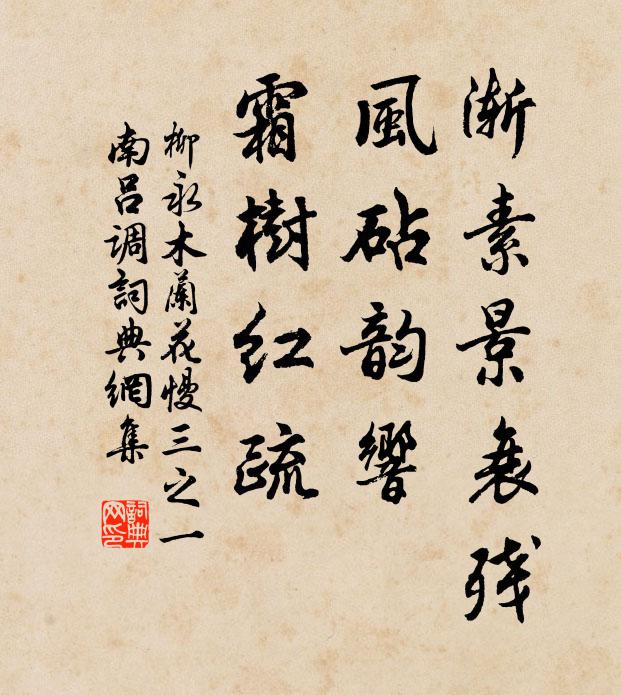 渐素景衰残
風砧韵響
霜樹红疏
柳永木蘭花慢三之一
南吕调詞典網集
詞典网印